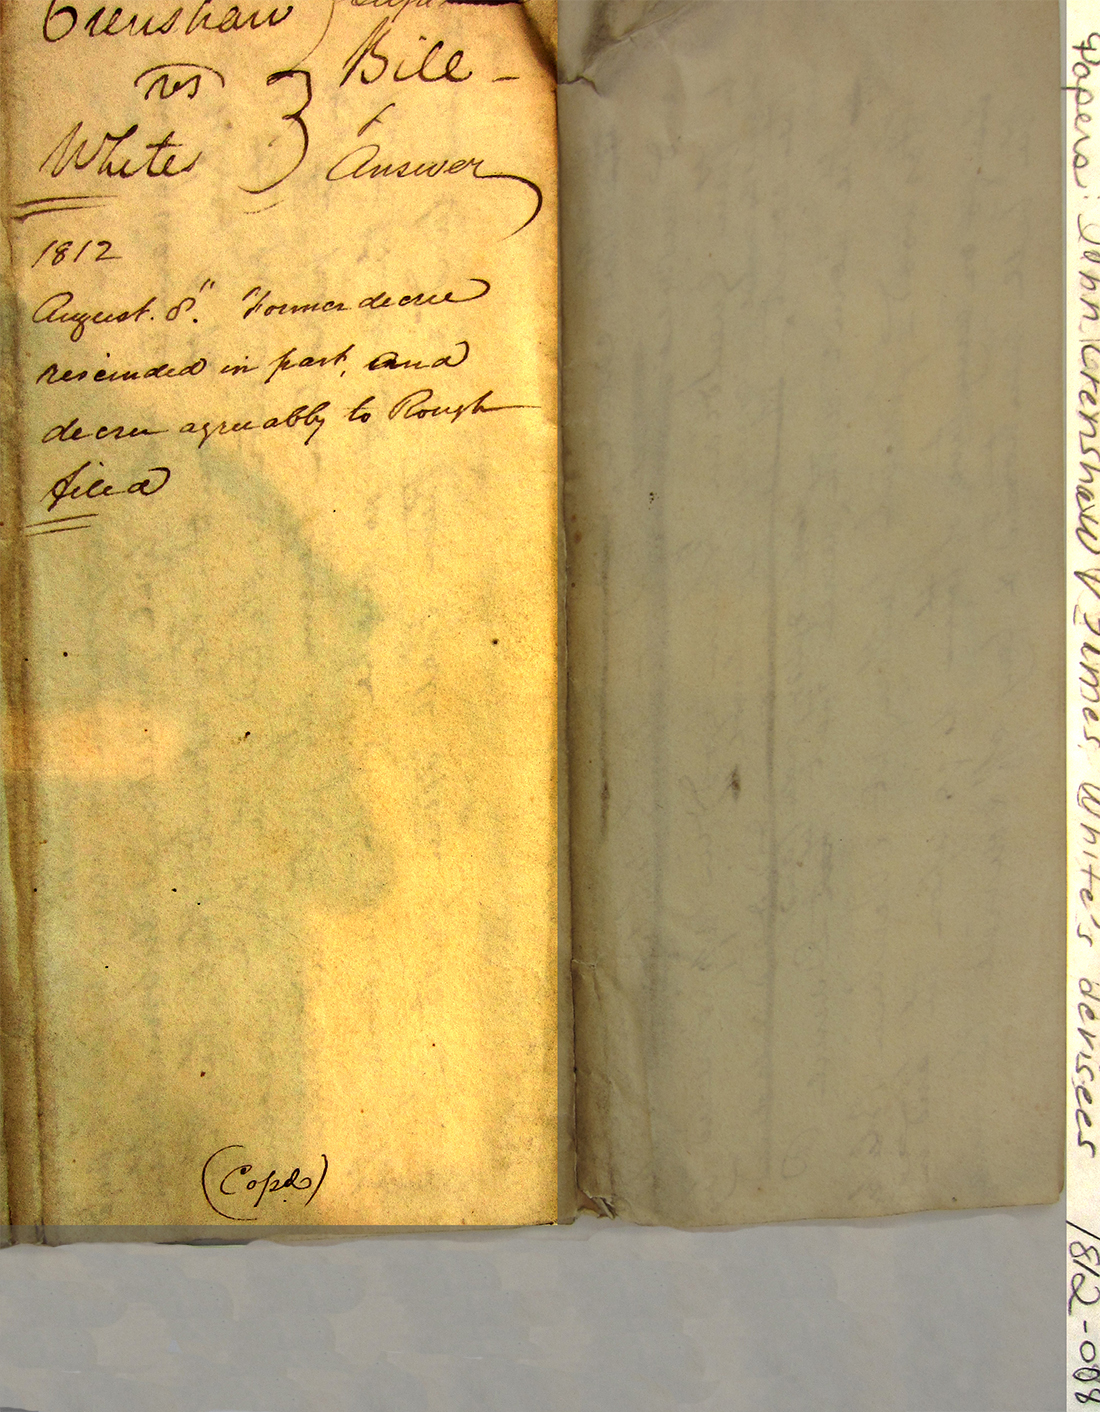 Crenshaw
vs } Bill -
Whites } Answer
1812
August. 8". Former decree
rescinded in part, and
decree agreeably to Rough
filed
(Copd)
Papers: John Crenshaw V James White's devisees 1812-008